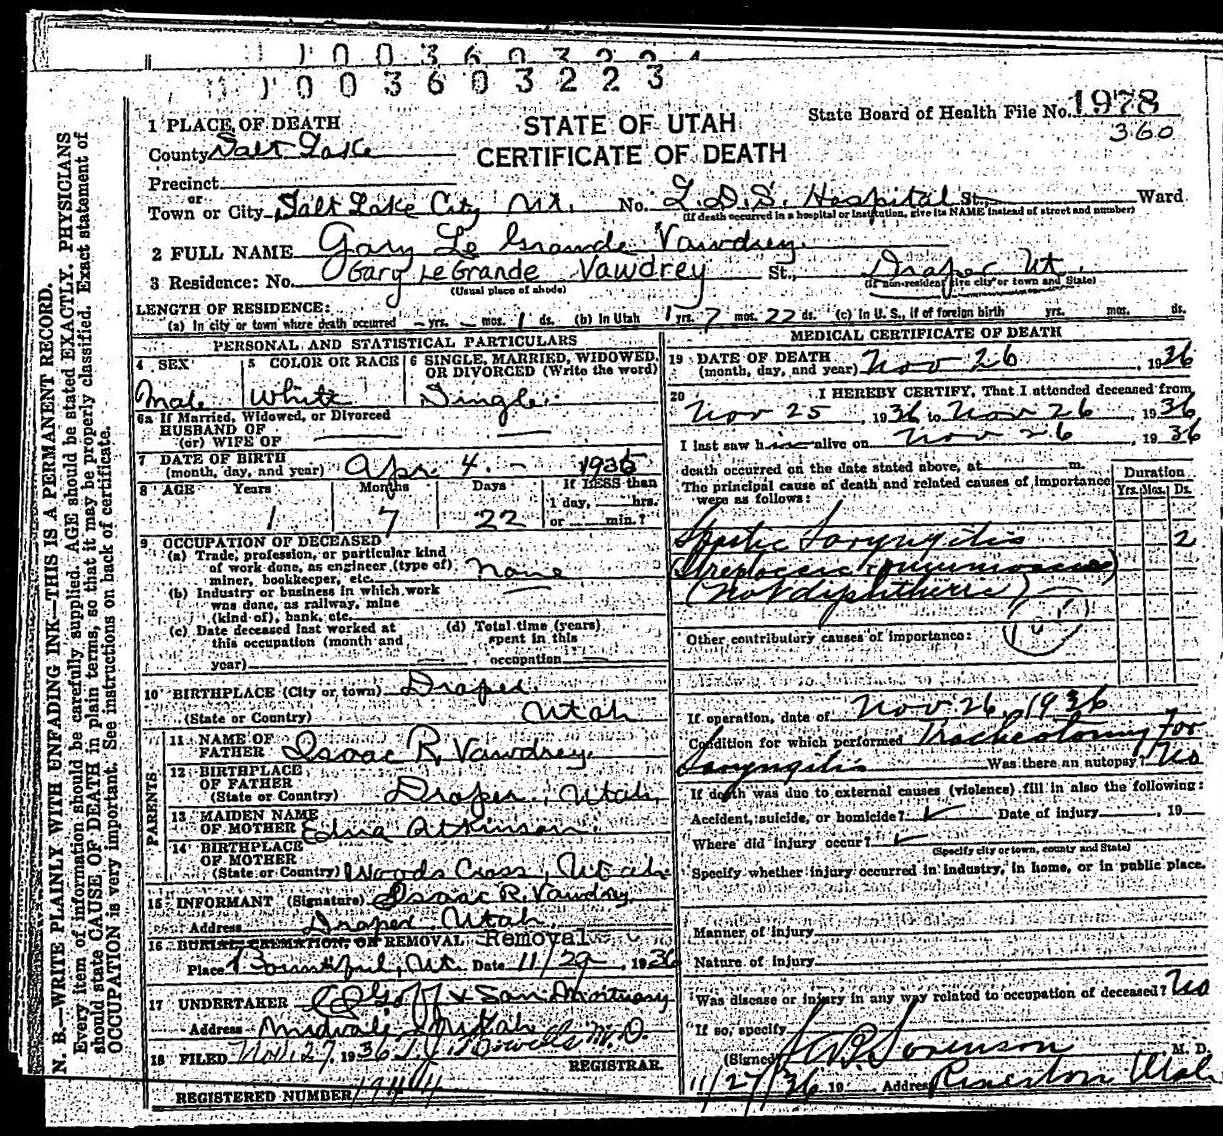 1 0 0 3 6 0 3 2 2
1 0 0 3 6 0 3 2 2 3
N. B.—WRITE PLAINLY WITH UNFADING INK—THIS IS A PERMANENT RECORD.
Every item of information should be carefully supplied. AGE should be stated EXACTLY. PHYSICIANS
should state CAUSE OF DEATH in plain terms, so that it may be properly classified. Exact statement of
OCCUPATION is very important. See instructions on back of certificate.
STATE OF UTAH
CERTIFICATE OF DEATH
State Board of Health File No. 1978
360
1 PLACE OF DEATH
County Salt Lake
Precinct
or
Town or City Salt Lake City Ut. No. L.D.S. Hospital St., Ward
(If death occurred in a hospital or institution, give its NAME instead of street and number)
2 FULL NAME Gary Le Grande Vawdrey
3 Residence: No. Gary LeGrande Vawdrey St., Draper Ut.
(Usual place of abode) (If non-resident give city or town and State)
LENGTH OF RESIDENCE:
(a) In city or town where death occurred – yrs. – mos. 1 ds. (b) In Utah 1 yrs. 7 mos. 22 ds. (c) In U. S., if of foreign birth yrs. mos. ds.
PERSONAL AND STATISTICAL PARTICULARS
4 SEX Male
5 COLOR OR RACE White
6 SINGLE, MARRIED, WIDOWED, OR DIVORCED (Write the word) Single
6a If Married, Widowed, or Divorced
HUSBAND OF
(or) WIFE OF
7 DATE OF BIRTH
(month, day, and year) Apr 4. – 1935
8 AGE Years Months Days If LESS than
1 day, hrs.
1 7 22 or min.?
9 OCCUPATION OF DECEASED
(a) Trade, profession, or particular kind
of work done, as engineer (type of) none
miner, bookkeeper, etc.
(b) Industry or business in which work
was done, as railway, mine
(kind of), bank, etc.
(c) Date deceased last worked at
this occupation (month and
year)
(d) Total time (years)
spent in this
occupation
10 BIRTHPLACE (City or town) Draper
(State or Country) Utah
PARENTS
11 NAME OF
FATHER Isaac R. Vawdrey
12 BIRTHPLACE
OF FATHER
(State or Country) Draper, Utah
13 MAIDEN NAME
OF MOTHER Edna Atkinson
14 BIRTHPLACE
OF MOTHER
(State or Country) Woods Cross, Utah
15 INFORMANT (Signature) Isaac R. Vawdrey
Address Draper Utah
16 BURIAL, CREMATION, OR REMOVAL Removal
Place Bountiful, Ut. Date 11/29, 1936
17 UNDERTAKER Goff & Son Mortuary
Address Midvale Utah
18 FILED Nov. 27, 1936 M.D.
REGISTRAR.
REGISTERED NUMBER
MEDICAL CERTIFICATE OF DEATH
19 DATE OF DEATH
(month, day, and year) Nov 26, 1936
20 I HEREBY CERTIFY, That I attended deceased from
Nov 25, 1936 to Nov 26, 1936
I last saw him alive on Nov 26, 1936
death occurred on the date stated above, at m.
The principal cause of death and related causes of importance
were as follows:
Duration
Yrs. Mos. Ds.
Septic Laryngitis 2
(Not diphtheric)
Other contributory causes of importance:
If operation, date of Nov 26, 1936
Condition for which performed Tracheotomy for
Laryngitis Was there an autopsy? No
If death was due to external causes (violence) fill in also the following:
Accident, suicide, or homicide? Date of injury , 19
Where did injury occur?
(Specify city or town, county and State)
Specify whether injury occurred in industry, in home, or in public place.
Manner of injury
Nature of injury
Was disease or injury in any way related to occupation of deceased? No
If so, specify
(Signed) Sorenson M. D.
11/27/36 19 Address Utah